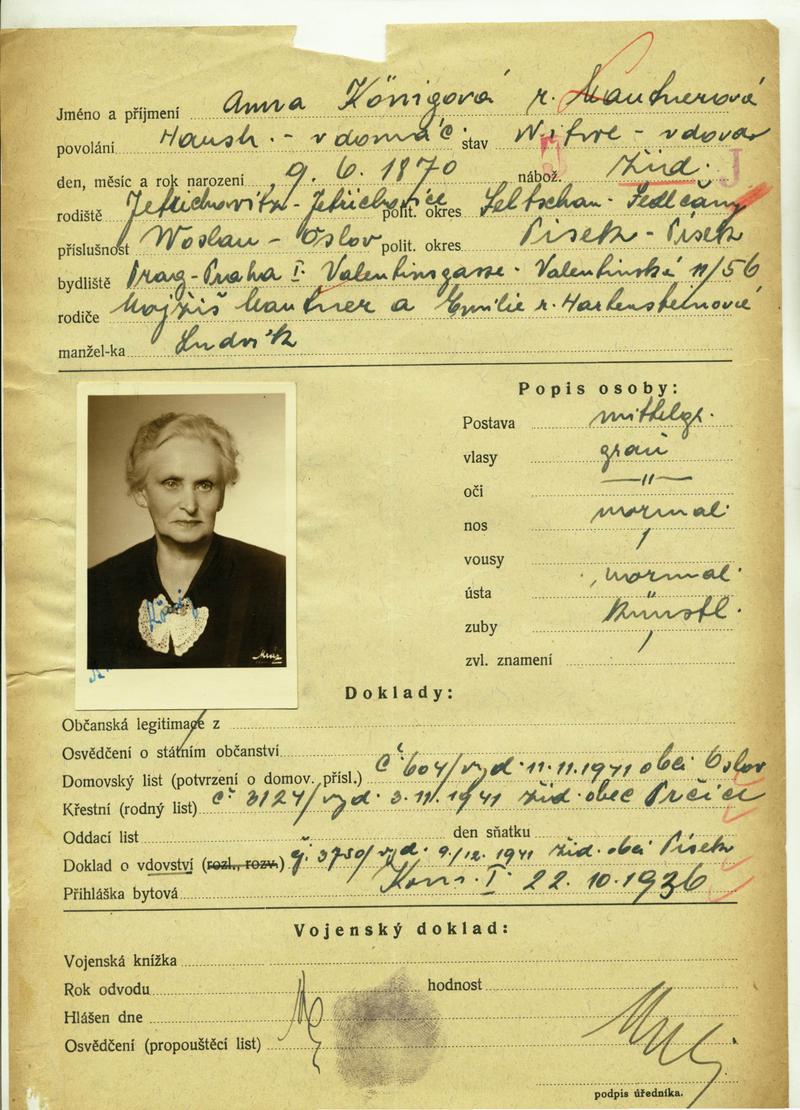 Jméno a příjmení Anna Königová r. Mautnerová
povolání Haush. - v domác. stav Witwe - vdova
den, měsíc a rok narození 9. 6. 1870 nábož. žid. J J
rodiště Jetřichovitz - Jetřichovice polit. okres Seltschan - Sedlčany
příslušnost Woslau - Oslov polit. okres Pisek - Písek
bydliště Prag - Praha I. Valentinsgasse - Valentinská 11/56
rodiče Mojžíš Mautner a Emilie r. Hartensteinové
manžel-ka Ludvík
Popis osoby:
Postava mittelgr.
vlasy grau
oči —"—
nos normal
vousy /
ústa normal
zuby künstl.
zvl. znamení /
Doklady:
Občanská legitimace z
Osvědčení o státním občanství
Domovský list (potvrzení o domov. přísl.) č 604/vyd. 11.11.1941 obcí Oslov
Křestní (rodný list) č 3124/vyd. 3.11.1941 žid. obec Prčice
Oddací list den sňatku
Doklad o vdovství (rozl., rozv.) čj. 3750/vyd. 9/12. 1941 žid. obcí Písek
Přihláška bytová Kom. I. 22. 10. 1936
Vojenský doklad:
Vojenská knížka
Rok odvodu hodnost
Hlášen dne
Osvědčení (propouštěcí list)
podpis úředníka.